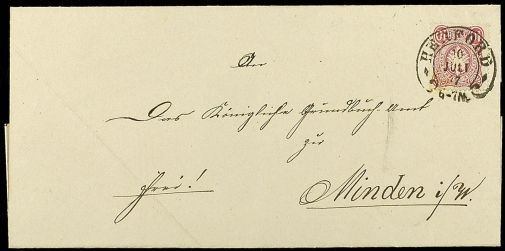 HERFORD
16
JULI
6-7N.
An
Das Königliche Grundbuch-Amt
zu
frei!
Minden i/W.